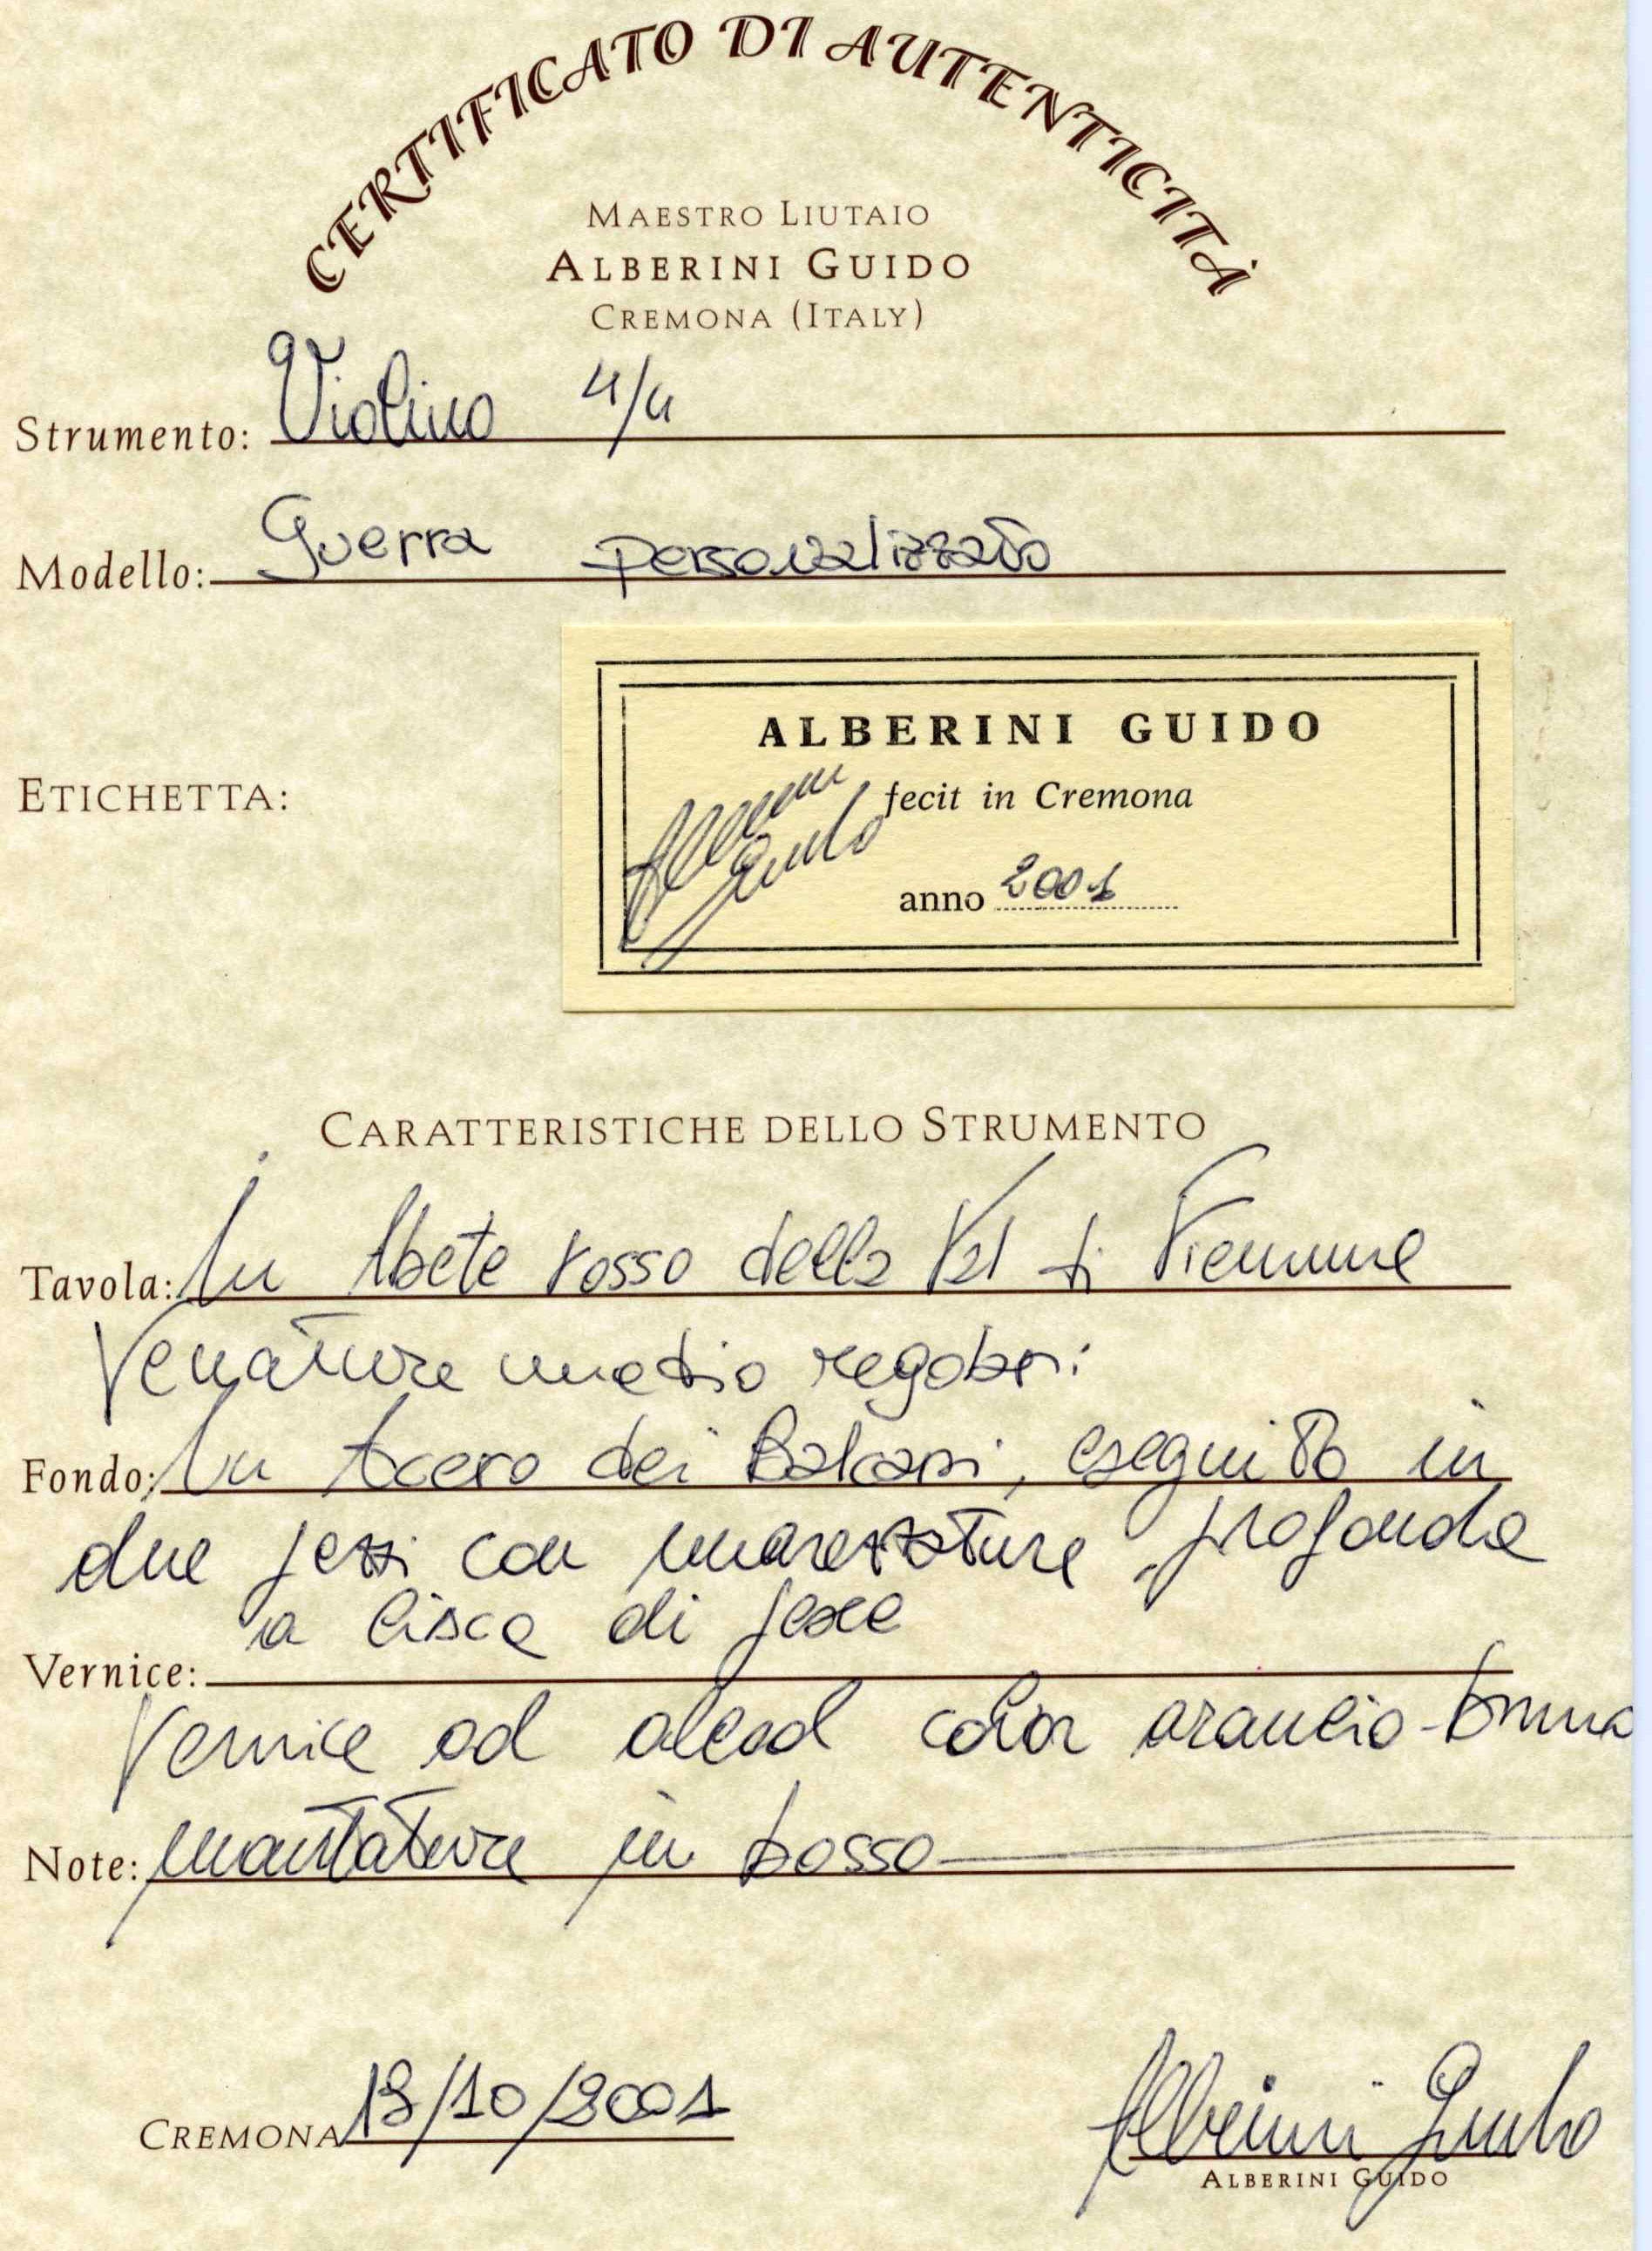 CERTIFICATO DI AUTENTICITÀ
MAESTRO LIUTAIO
ALBERINI GUIDO
CREMONA (ITALY)
Strumento: Violino 4/4
Modello: Guerra personalizzato
ETICHETTA:
ALBERINI GUIDO
fecit in Cremona
Alberini
Guido
anno 2001
CARATTERISTICHE DELLO STRUMENTO
Tavola: In Abete rosso della Val di Fiemme
Venature medio regolari
Fondo: In Acero dei Balcani, eseguito in
due pezzi con marezzature profonde
a lisca di pesce
Vernice:
Vernice ad alcool color arancio-bruno
Note: montature in bosso
CREMONA 13/10/2001
Alberini Guido
ALBERINI GUIDO